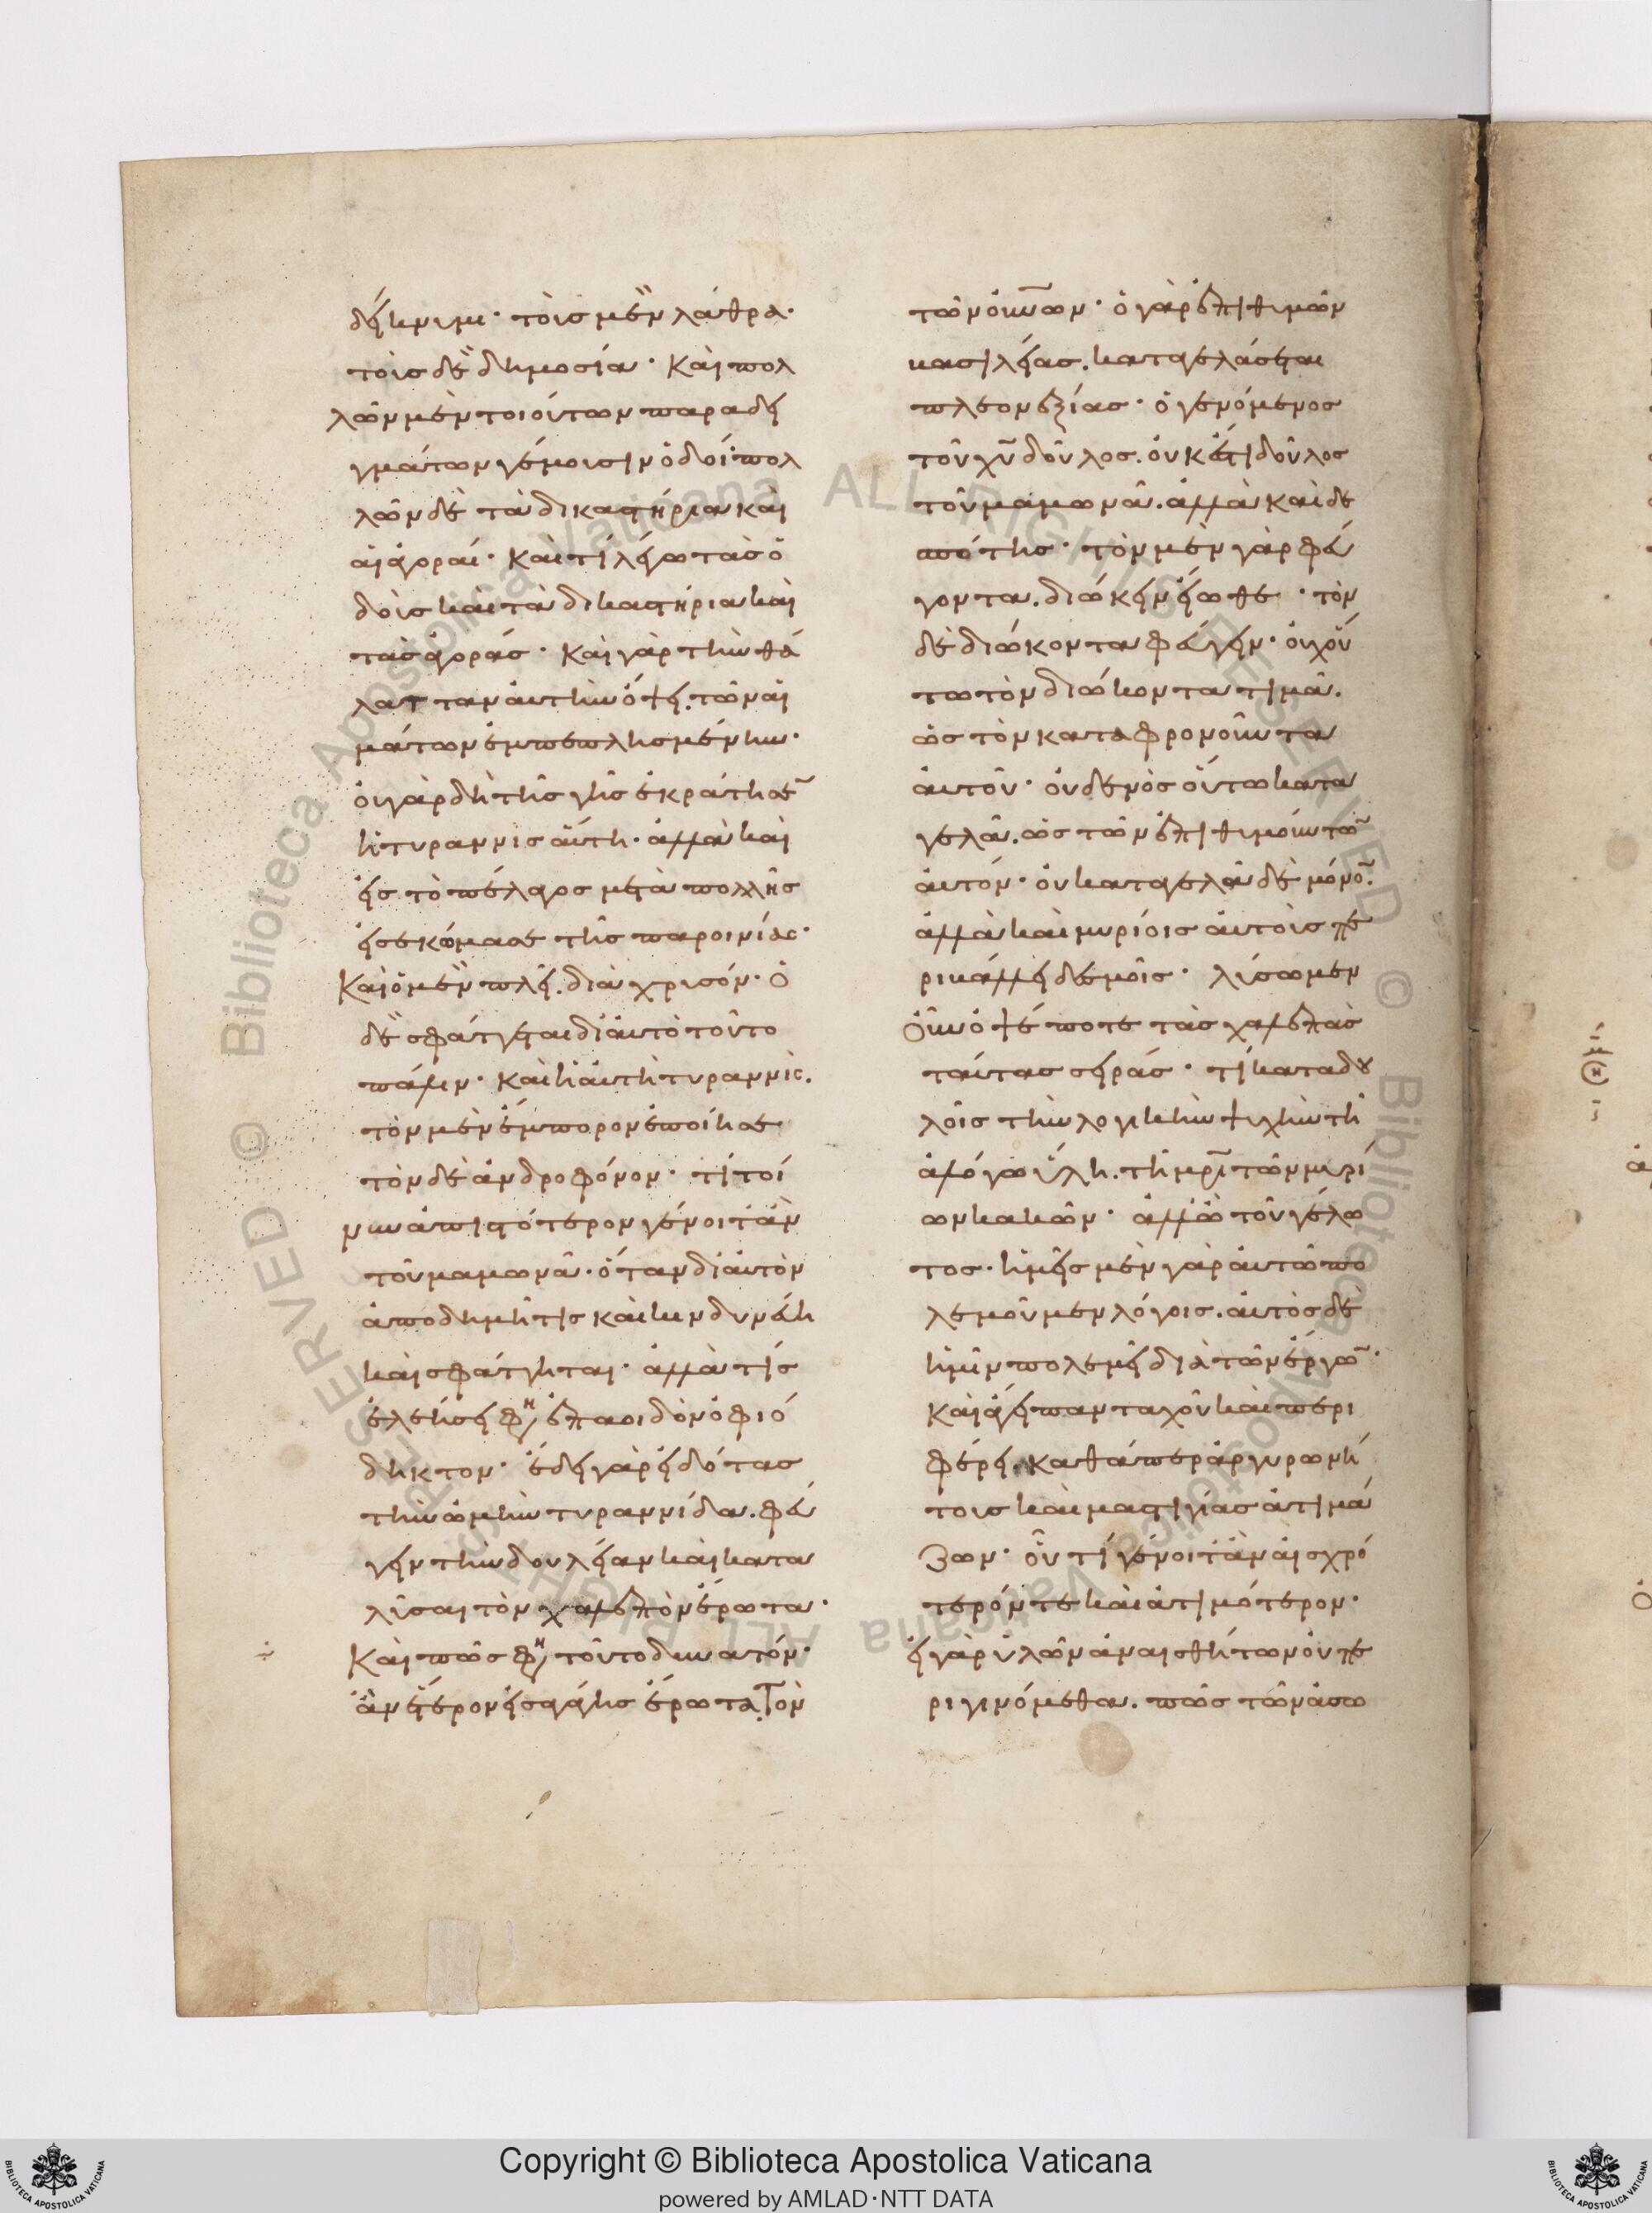 δείκνυμι· τοῖς μὲν λάθρα·
τοῖς δὲ δημοσία· Καὶ πολ
λῶν μὲν τοιούτων παραδει
γμάτων γέμουσιν ὁδοί· πολ
λῶν δὲ τὰ δικαστήρια καὶ
αἱ ἀγοραί· Καὶ τί λέγω τὰς ὁ
δοὺς καὶ τὰ δικαστήρια καὶ
τὰς ἀγοράς· Καὶ γὰρ τὴν θά
λατταν αὐτὴν ὄψει. τῶν αἱ
μάτων ἐμπεπλησμένην·
οὐ γὰρ δὴ τῆς γῆς ἐκράτησε̄
ἡ τυραννὶς αὕτη· ἀλλὰ καὶ
εἰς τὸ πέλαγος μετὰ πολλῆς
εἰσεκώμασε τῆς παροινίας·
Καὶ ὁ μὲν πλεῖ. διὰ χρυσόν· ὁ
δὲ σφάττεται δι' αὐτὸ τοῦτο
πάλιν· Καὶ ἡ αὐτὴ τυραννὶς.
τὸν μὲν ἔμπορον ἐποίησε
τὸν δὲ ἀνδροφόνον· τί τοί
νυν ἀπιστότερον γένοιτ' ἂν
τοῦ μαμωνᾶ· ὅταν δι' αὐτὸν
ἀποδημῆ τις καὶ κινδυνεύη
καὶ σφάττηται· ἀλλὰ τίς
ἐλεήσει φη ἐπαοιδὸν ὀφιό
δηκτον· ἔδει γὰρ εἰδότας
τὴν ὠμὴν τυραννίδα. φεύ
γειν τὴν δουλείαν καὶ κατα
λῦσαι τὸν χαλεπὸν ἔρωτα·
Καὶ πῶς φη τοῦτο δυνατόν·
ἂν ἕτερον εἰσαγάγης ἔρωτα. Τὸν
τῶν οὐνῶν· ὁ γὰρ ἐπιθυμῶν
βασιλείας. καταγελάσεται
πλεονεξίας· ὁ γενόμενος
τοῦ χῦ δοῦλος. οὐκ ἔτι δοῦλος
τοῦ μαμωνᾶ. ἀλλὰ καὶ δε
σπότης· τὸν μὲν γὰρ φεύ
γοντα. διώκειν εἴωθε· τὸν
δὲ διώκοντα φεύγειν· οὐχ οὕ
τω τὸν διώκοντα τιμᾶ.
ὡς τὸν καταφρονοῦντα
αὐτοῦ· οὐδενὸς οὕτω κατα
γελᾶ. ὡς τῶν ἐπιθυμούντω̄
αὐτόν· οὐ καταγελᾶ δὲ μόνο̄.
ἀλλὰ καὶ μυρίοις αὐτοὺς πε
ριβάλλει δεσμοῖς· λύσωμεν
οὖν ὀψέ ποτε τὰς χαλεπὰς
ταύτας σειράς· τί καταδȣ
λοῖς τὴν λογικὴν ψυχὴν τῆ
ἀλόγω ὕλη. τῆ μρῖ τῶν μυρί
ων κακῶν· ἀλλ' ὢ τοῦ γέλω
τος· ἡμεῖς μὲν γὰρ αὐτῶ πο
λεμοῦμεν λόγοις. αὐτὸς δὲ
ἡμῖν πολεμεῖ διὰ τῶν ἔργω̄·
Καὶ ἄγει πανταχοῦ καὶ περι
φέρει. καθάπερ ἀργυρωνή
τους καὶ μαστιγίας ἀτιμά
ζων· οὗ τί γένοιτ' ἂν αἰσχρό
τερόν τε καὶ ἀτιμότερον·
εἰ γὰρ ὑλῶν ἀναισθήτων οὐ πε
ριγινόμεθα. πῶς τῶν ἀσω